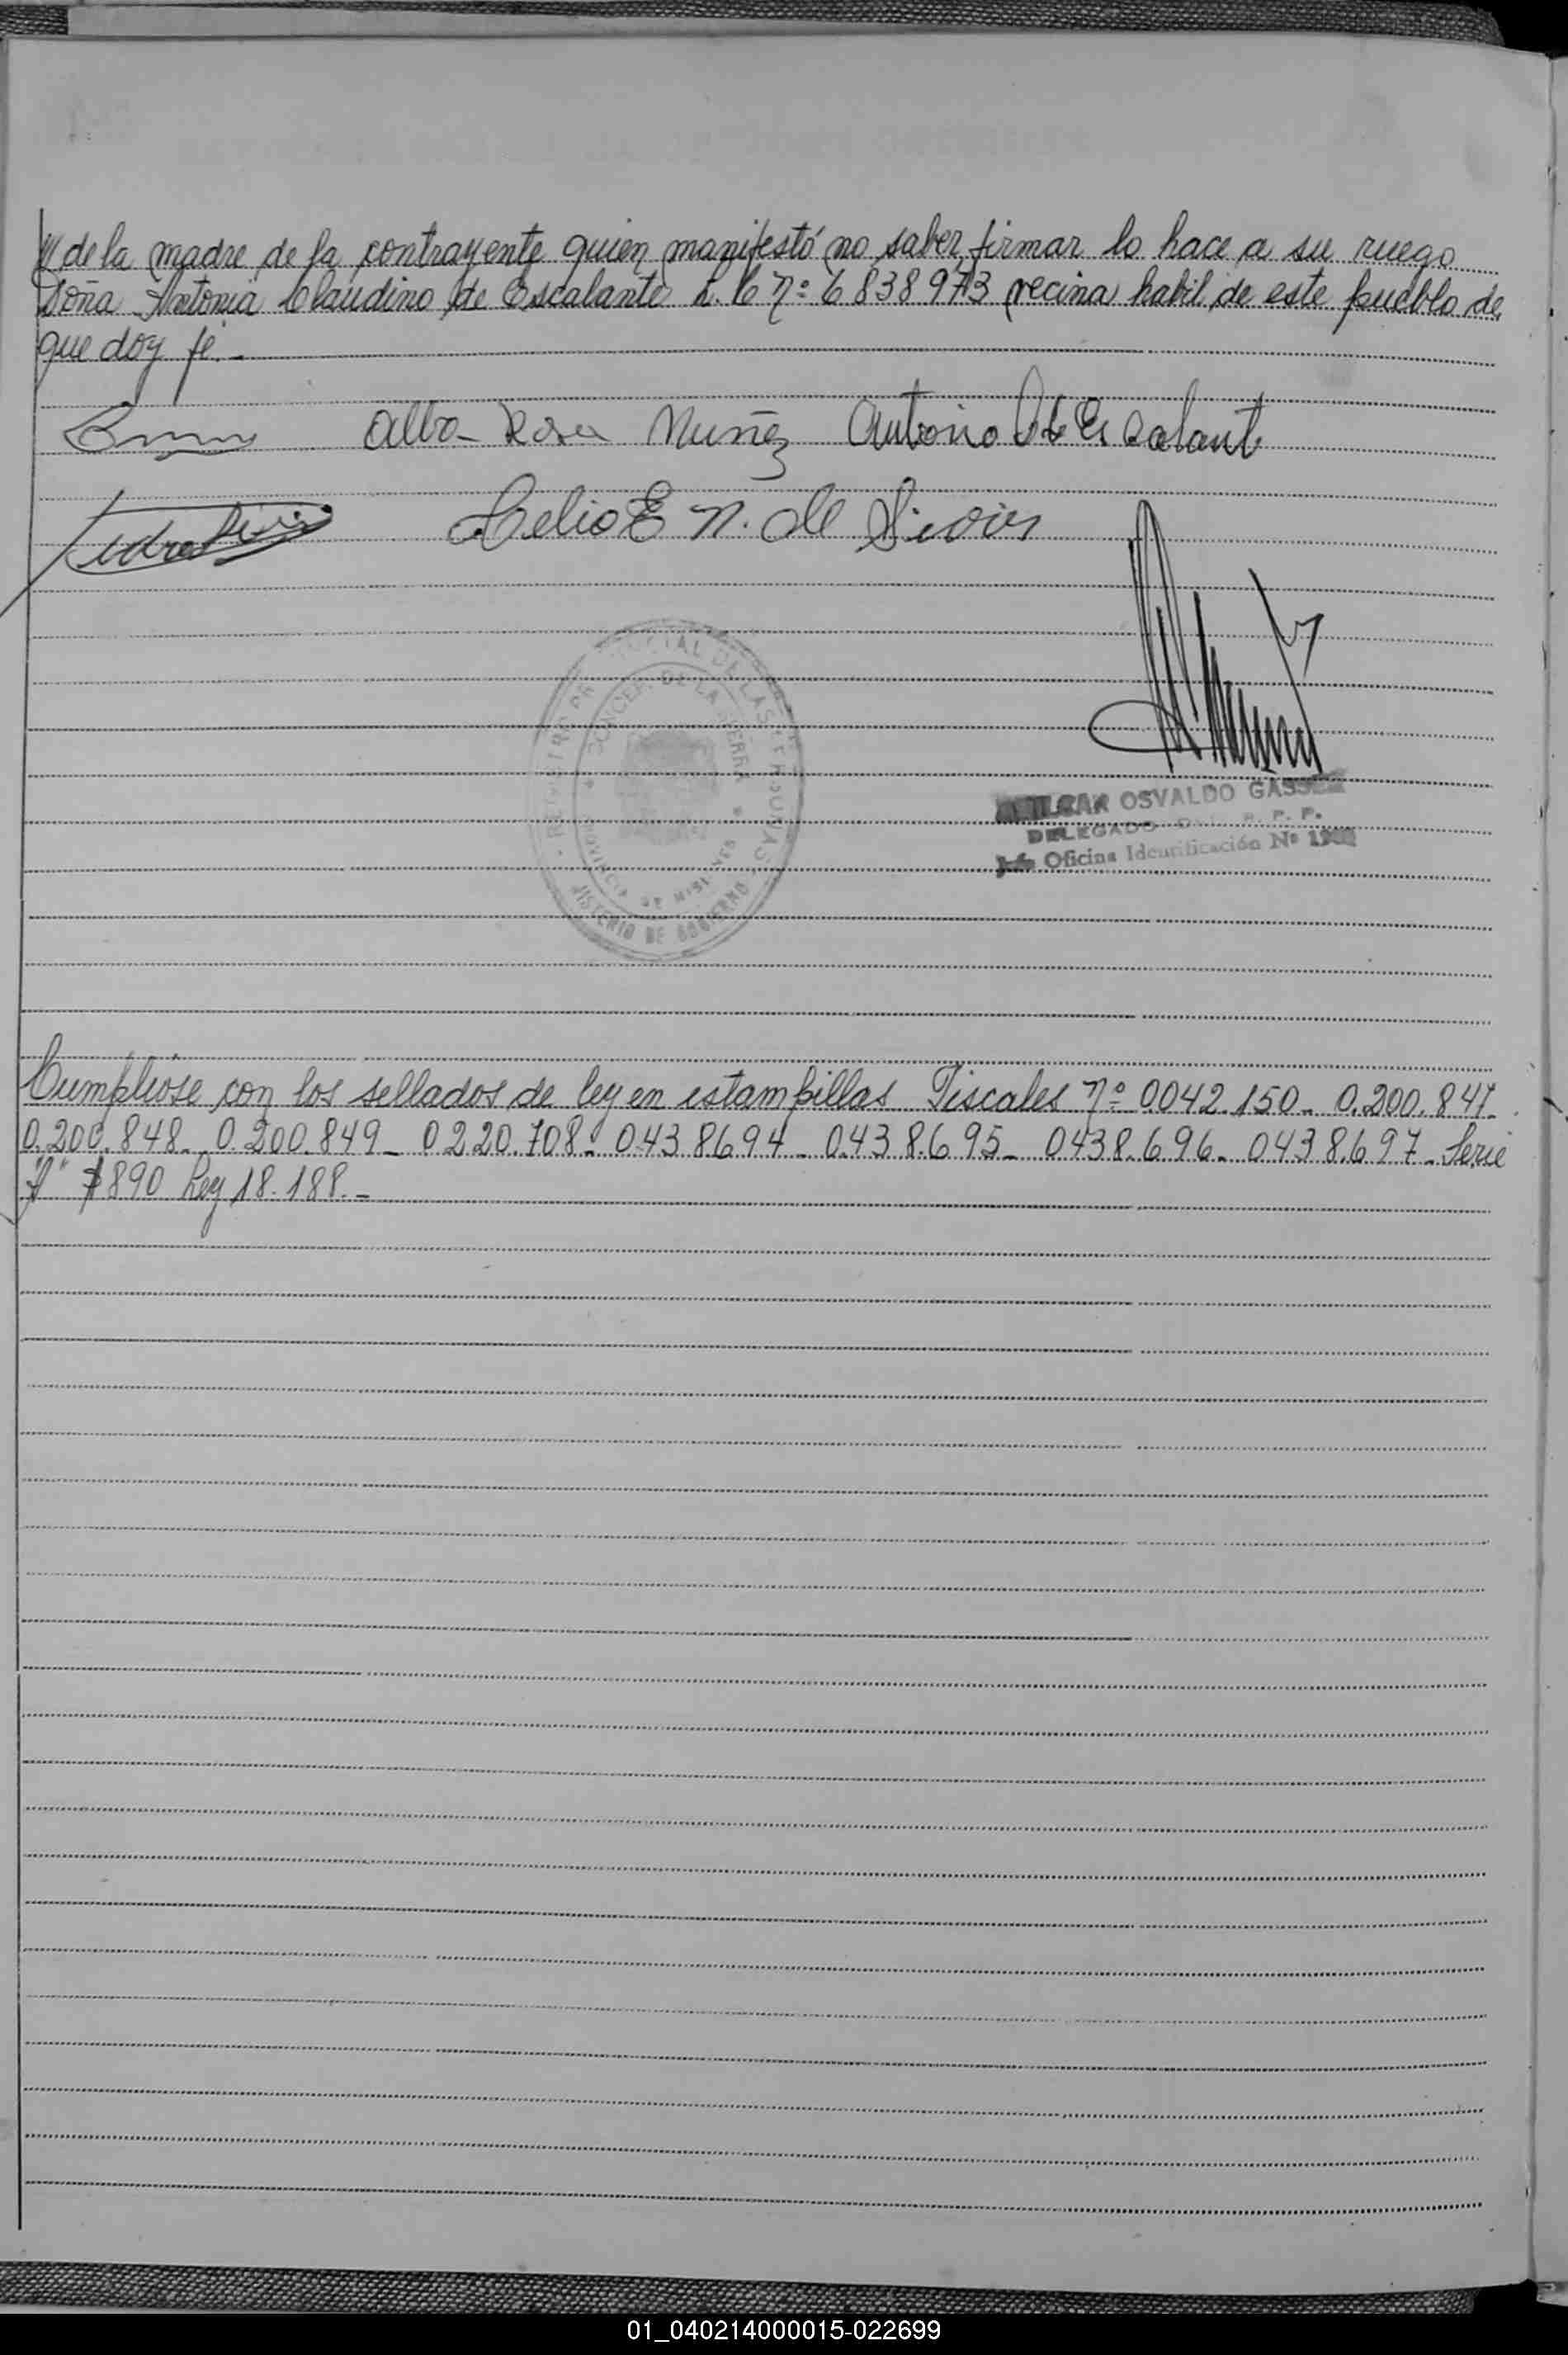 /// de la madre de la contrayente quien manifestó no saber firmar lo hace a su ruego
Doña Antonia Claudino de Escalante L.C nº 6838973 vecina habil de este pueblo de
que doy fé.-
Alba Rosa Nuñez Antonio de Escalant
Celia E N. de
REGISTRO PROVINCIAL DE LAS PERSONAS
CONCEP. DE LA SIERRA
PROVINCIA DE MISIONES
MINISTERIO DE GOBIERNO
AMILCAR OSVALDO GASSER
DELEGADO DEL R. P. P.
Jefe Oficina Identificación Nº
Cumpliose con los sellados de ley en estampillas Fiscales nº 0042.150- 0.200.847-
0.200.848- 0.200.849- 0220.708- 0438694- 0438.695- 0438.696- 0438.697- Serie
"A" $890 Ley 18.188.-
01_040214000015-022699